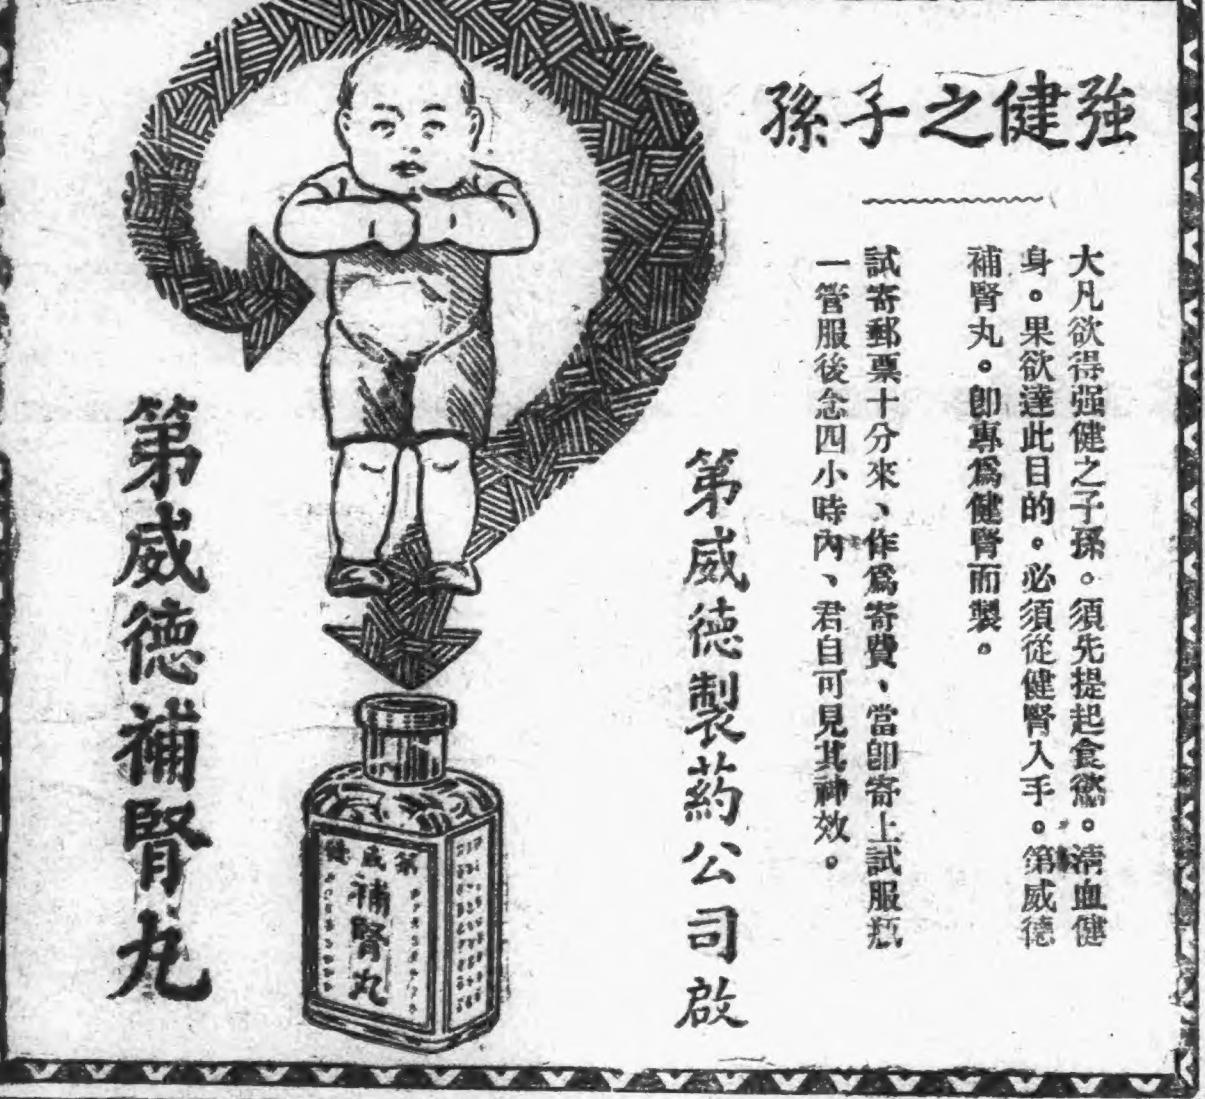 強健之子孫
大凡欲得强健之子孫。須先提起食慾。清血健
身。果欲達此目的。必須從健腎入手。第威德
補腎丸。卽專爲健腎而製。
試寄郵票十分來、作爲寄費、當卽寄上試服瓶
一管服後念四小時內、君自可見其神效。
第威德製葯公司啟
第威德補腎丸
第威德
補腎丸